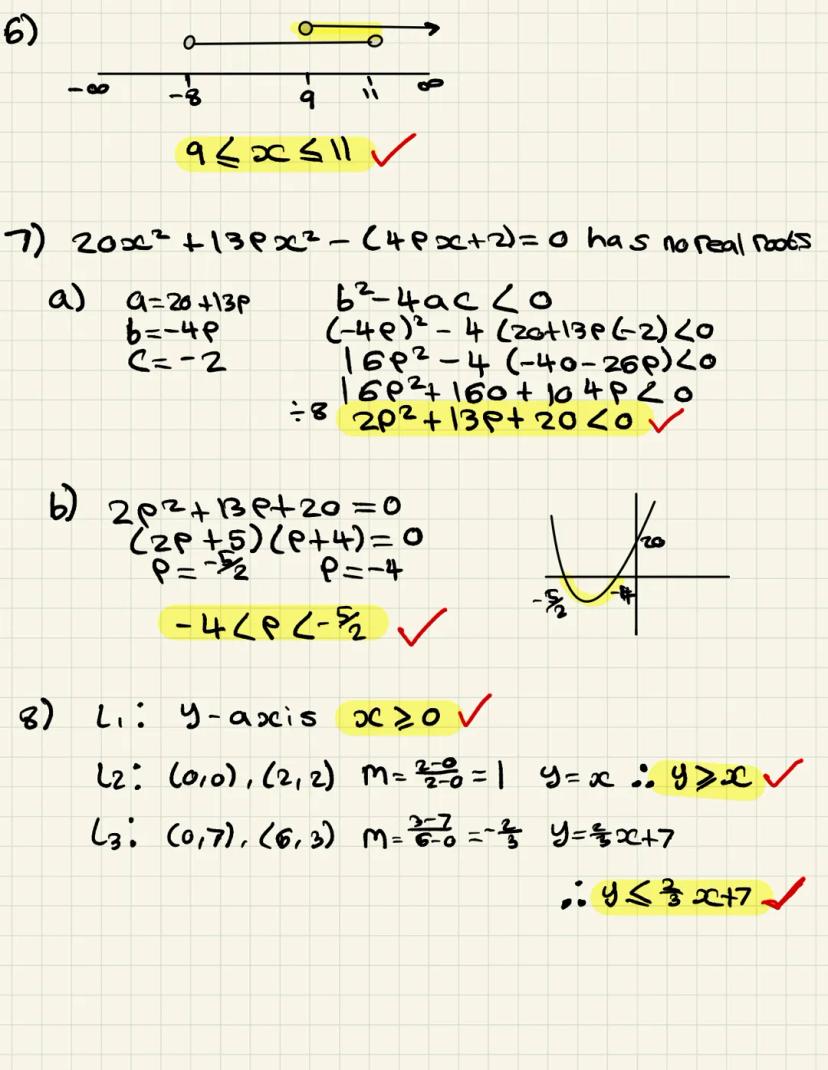 6)
-∞ -8 9 11 ∞
9 ≤ x ≤ 11 ✓
7) 20x² + 13px² - (4px+2) = 0 has no real roots
a) a=20+13p b²-4ac < 0
b=-4p (-4p)² - 4 (20+13p(-2) <0
c=-2 16p² - 4 (-40-26p) <0
16p² + 160 + 104p < 0
÷8 2p² + 13p + 20 < 0 ✓
b) 2p² + 13p + 20 = 0
(2p +5)(p+4) = 0
p = -5/2 p = -4
20
-5/2 -4
-4 < p < -5/2 ✓
8) L1: y-axis x ≥ 0 ✓
L2: (0,0), (2,2) m = 2-0/2-0 = 1 y = x ∴ y ≥ x ✓
L3: (0,7), (6,3) m = 3-7/6-0 = -2/3 y = 2/3x+7
∴ y ≤ 2/3 x+7 ✓